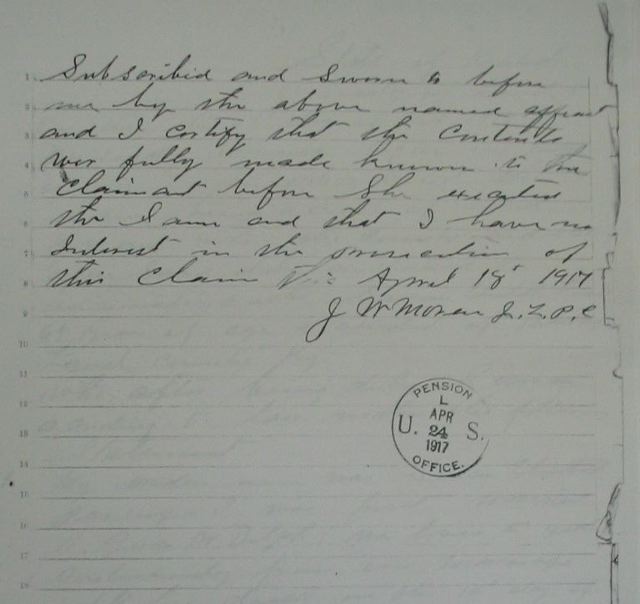 Subscribid and Sworn to before
me by the above named affiant
and I certify that the Contents
wer fully made known to the
Claimant before She executed
the Same and that I have no
Interest in the prosecution of
this Claim April 18 1917
J W Moran J. P.
PENSION
L
APR
U. 24 S.
1917
OFFICE.
1
2
3
4
5
6
7
8
9
10
11
12
13
14
15
16
17
18